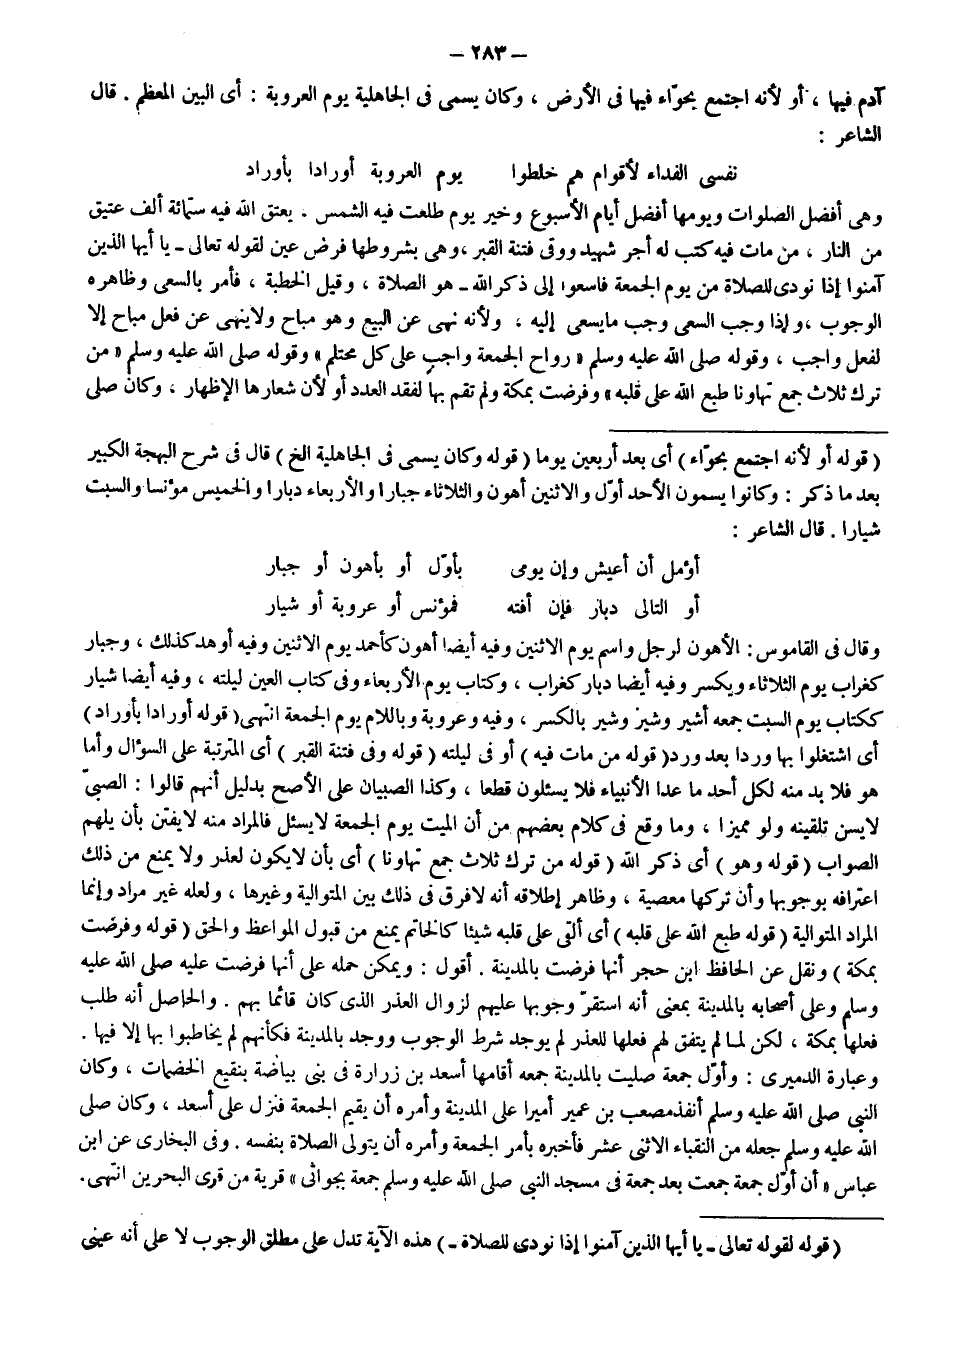 – ٢٨٣ –
آدم فيها ، أو لأنه اجتمع بحوّاء فيها فى الأرض ، وكان يسمى فى الجاهلية يوم العروبة : أى البين المعظم . قال
الشاعر :
نفسى الفداء لأقوام هم خلطوا يوم العروبة أورادا بأوراد
وهى أفضل الصلوات ويومها أفضل أيام الأسبوع وخير يوم طلعت فيه الشمس . يعتق الله فيه ستمائة ألف عتيق
من النار ، من مات فيه كتب له أجر شهيد ووقى فتنة القبر ، وهى بشروطها فرض عين لقوله تعالى ـ يا أيها الذين
آمنوا إذا نودى للصلاة من يوم الجمعة فاسعوا إلى ذكر الله ـ هو الصلاة ، وقيل الخطبة ، فأمر بالسعى وظاهره
الوجوب ، وإذا وجب السعى وجب مايسعى إليه ، ولأنه نهى عن البيع وهو مباح ولاينهى عن فعل مباح إلا
لفعل واجب ، وقوله صلى الله عليه وسلم « رواح الجمعة واجب على كل محتلم » وقوله صلى الله عليه وسلم « من
ترك ثلاث جمع تهاونا طبع الله على قلبه » وفرضت بمكة ولم تقم بها لفقد العدد أو لأن شعارها الإظهار ، وكان صلى
( قوله أو لأنه اجتمع بحوّاء ) أى بعد أربعين يوما ( قوله وكان يسمى فى الجاهلية الخ ) قال فى شرح البهجة الكبير
بعد ما ذكر : وكانوا يسمون الأحد أوّل والاثنين أهون والثلاثاء جبارا والأربعاء دبارا والخميس مؤنسا والسبت
شيارا . قال الشاعر :
أؤمل أن أعيش وإن يومى بأوّل أو بأهون أو جبار
أو التالى دبار فإن أفته فمؤنس أو عروبة أو شيار
وقال فى القاموس : الأهون لرجل واسم يوم الاثنين وفيه أيضا أهون كأحمد يوم الاثنين وفيه أوهد كذلك ، وجبار
كغراب يوم الثلاثاء ويكسر وفيه أيضا دبار كغراب ، وكتاب يوم الأربعاء وفى كتاب العين ليلته ، وفيه أيضا شيار
ككتاب يوم السبت جمعه أشير وشيز وشير بالكسر ، وفيه وعروبة وباللام يوم الجمعة انتهى ( قوله أورادا بأوراد )
أى اشتغلوا بها وردا بعد ورد ( قوله من مات فيه ) أو فى ليلته ( قوله وفى فتنة القبر ) أى المترتبة على السؤال وأما
هو فلا بد منه لكل أحد ما عدا الأنبياء فلا يسئلون قطعا ، وكذا الصبيان على الأصح بدليل أنهم قالوا : الصبىّ
لايسن تلقينه ولو مميزا ، وما وقع فى كلام بعضهم من أن الميت يوم الجمعة لايسئل فالمراد منه لايفتن بأن يلهم
الصواب ( قوله وهو ) أى ذكر الله ( قوله من ترك ثلاث جمع تهاونا ) أى بأن لايكون لعذر ولا يمنع من ذلك
اعترافه بوجوبها وأن تركها معصية ، وظاهر إطلاقه أنه لافرق فى ذلك بين المتوالية وغيرها ، ولعله غير مراد وإنما
المراد المتوالية ( قوله طبع الله على قلبه ) أى ألقى على قلبه شيئا كالخاتم يمنع من قبول المواعظ والحق ( قوله وفرضت
بمكة ) ونقل عن الحافظ ابن حجر أنها فرضت بالمدينة . أقول : ويمكن حمله على أنها فرضت عليه صلى الله عليه
وسلم وعلى أصحابه بالمدينة بمعنى أنه استقرّ وجوبها عليهم لزوال العذر الذى كان قائما بهم . والحاصل أنه طلب
فعلها بمكة ، لكن لما لم يتفق لهم فعلها للعذر لم يوجد شرط الوجوب ووجد بالمدينة فكأنهم لم يخاطبوا بها إلا فيها .
وعبارة الدميرى : وأوّل جمعة صليت بالمدينة جمعه أقامها أسعد بن زرارة فى بنى بياضة بنقيع الخضمات ، وكان
النبى صلى الله عليه وسلم أنفذ مصعب بن عمير أميرا على المدينة وأمره أن يقيم الجمعة فنزل على أسعد ، وكان صلى
الله عليه وسلم جعله من النقباء الاثنى عشر فأخبره بأمر الجمعة وأمره أن يتولى الصلاة بنفسه . وفى البخارى عن ابن
عباس « أن أوّل جمعة جمعت بعد جمعة فى مسجد النبى صلى الله عليه وسلم جمعة بجواثى » قرية من قرى البحرين انتهى .
( قوله لقوله تعالى ـ يا أيها الذين آمنوا إذا نودى للصلاة ـ ) هذه الآية تدل على مطلق الوجوب لا على أنه عينى